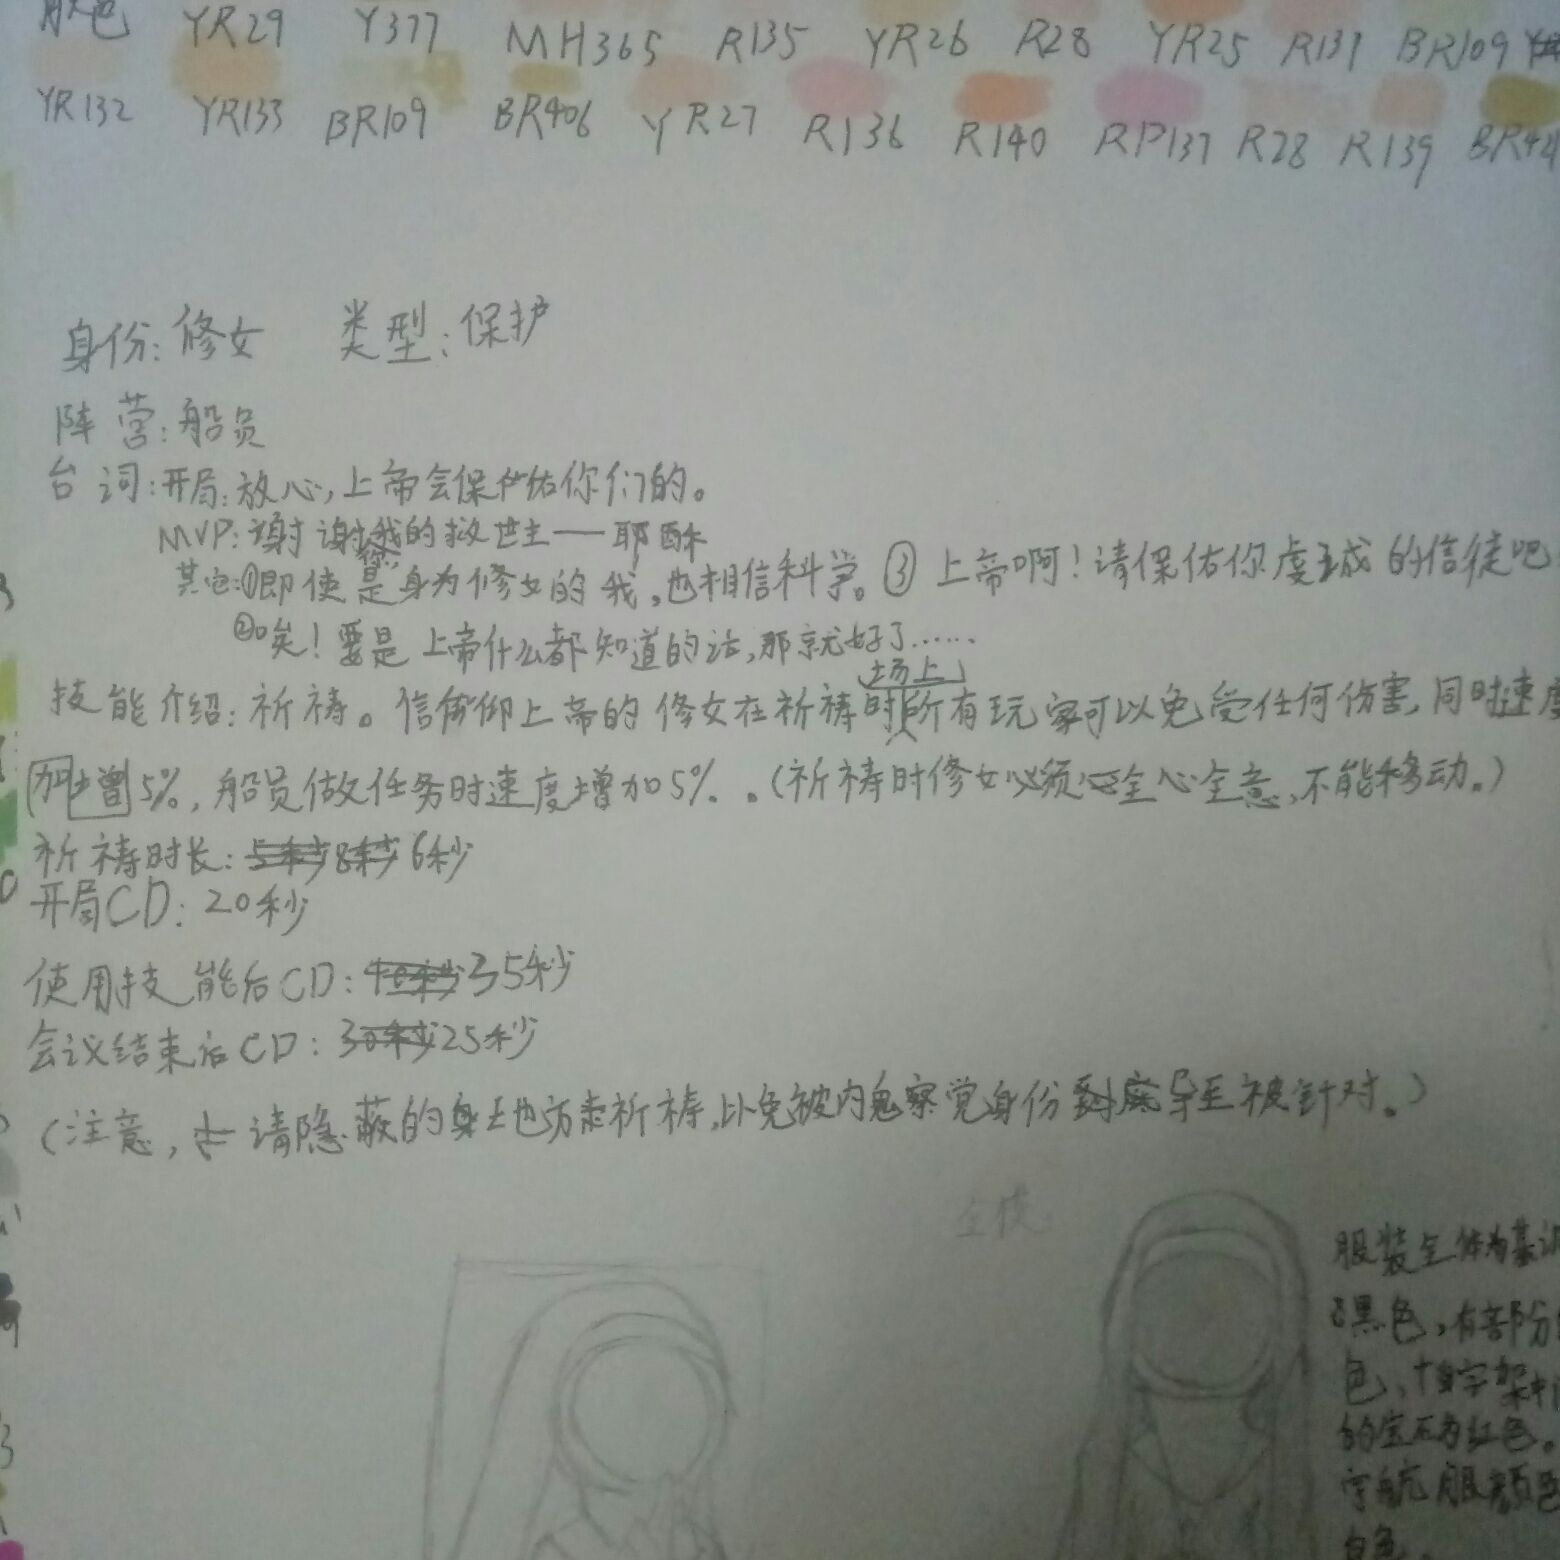 肤色 YR29 Y377 MH365 R135 YR26 R28 YR25 R131 BR109
YR132 YR133 BR109 BR406 YR27 R136 R140 RP137 R28 R139
身份：修女 类型：保护
阵营：船员
台词：开局：放心，上帝会保佑你们的。
MVP：谢谢我的救世主——耶稣
其它：①即使是身为修女的我，也相信科学。③上帝啊！请保佑你虔诚的信徒吧
②唉！要是上帝什么都知道的话，那就好了……
场上
技能介绍：祈祷。信仰上帝的修女在祈祷时所有玩家可以免受任何伤害，同时速度
增加5%，船员做任务时速度增加5%。（祈祷时修女必须全心全意，不能移动。）
祈祷时长：5秒 8秒 6秒
开局CD：20秒
使用技能后CD：40秒 35秒
会议结束后CD：30秒 25秒
（注意，请隐蔽的地方走祈祷，以免被内鬼察觉身份导至被针对。）
服装全体为基调
黑色，有部分
色，十字架中
的宝石为红色。
宇航服颜色
白色。